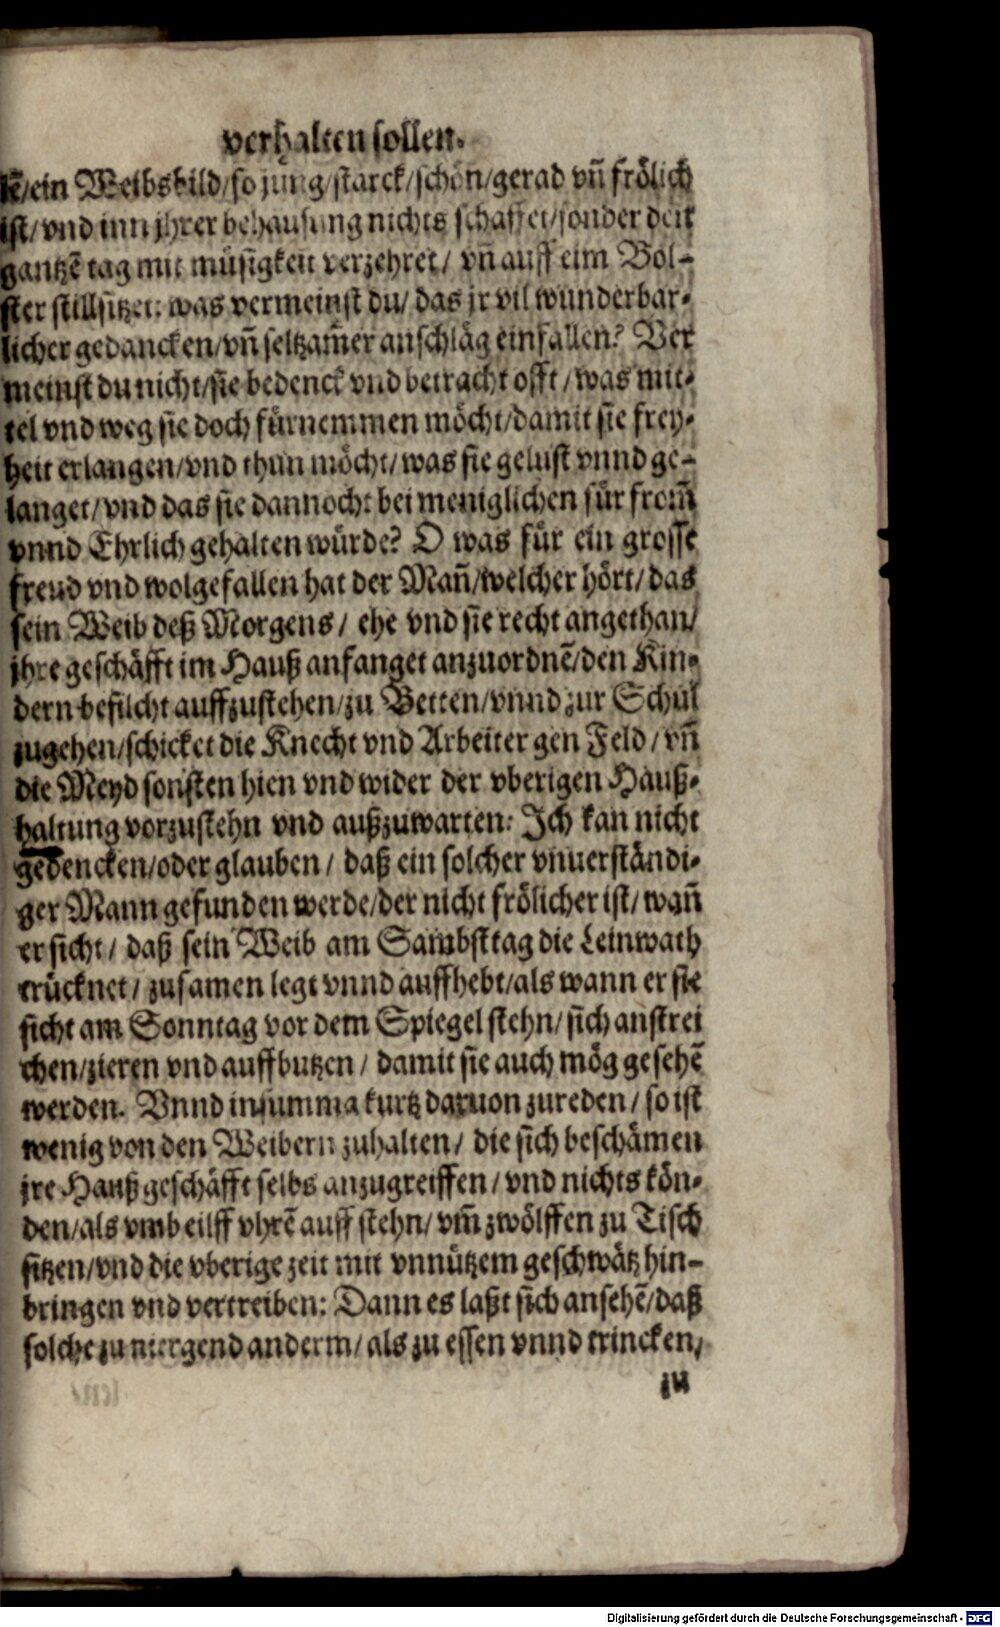 verhalten sollen.
kẽ/ein Weibsbild/so jung/starck/schön/gerad vñ frölich
ist/vnd inn jhrer behausung nichts schaffet/sonder den
gantzẽ tag mit müsigkeit verzehret/ vñ auff eim Bol-
ster stillsitzet: was vermeinst du/ das jr vil wunderbar-
licher gedancken/vñ seltzam̃er anschläg einfallen? Ver
meinst du nicht/sie bedenck vnd betracht offt/was mit-
tel vnd weg sie doch fürnemmen möcht/damit sie frey-
heit erlangen/vnd thun möcht/was sie gelust vnnd ge-
langet/vnd das sie dannocht bei meniglichen für from̃
vnnd Ehrlich gehalten würde? O was für ein grosse
freud vnd wolgefallen hat der Mañ/welcher hört/das
sein Weib deß Morgens/ ehe vnd sie recht angethan/
jhre geschäfft im Hauß anfanget anzuordnẽ/den Kin-
dern befilcht auffzustehen/zu Betten/vnnd zur Schul
zugehen/schicket die Knecht vnd Arbeiter gen Feld/vñ
die Meyd sonsten hien vnd wider der vberigen Hauß-
haltung vorzustehn vnd außzuwarten: Ich kan nicht
gedencken/oder glauben/ daß ein solcher vnuerständi-
ger Mann gefunden werde/der nicht frölicher ist/wañ
er sicht/ daß sein Weib am Sambsttag die Leinwath
trücknet/zusamen legt vnnd auffhebt/als wann er sie
sicht am Sonntag vor dem Spiegel stehn/sich anstrei
chen/zieren vnd auffbutzen/ damit sie auch mög gesehẽ
werden. Vnnd insumma kurtz daruon zureden/so ist
wenig von den Weibern zuhalten/ die sich beschämen
jre Hauß geschäfft selbs anzugreiffen/vnd nichts kön-
den/als vmb eilff vhrẽ auff stehn/vm̃ zwölffen zu Tisch
sitzen/vnd die vberige zeit mit vnnützem geschwätz hin-
bringen vnd vertreiben: Dann es laßt sich ansehẽ/daß
solche zu niergend anderm/als zu essen vnnd trincken/
zu
Digitalisierung gefördert durch die Deutsche Forschungsgemeinschaft - DFG